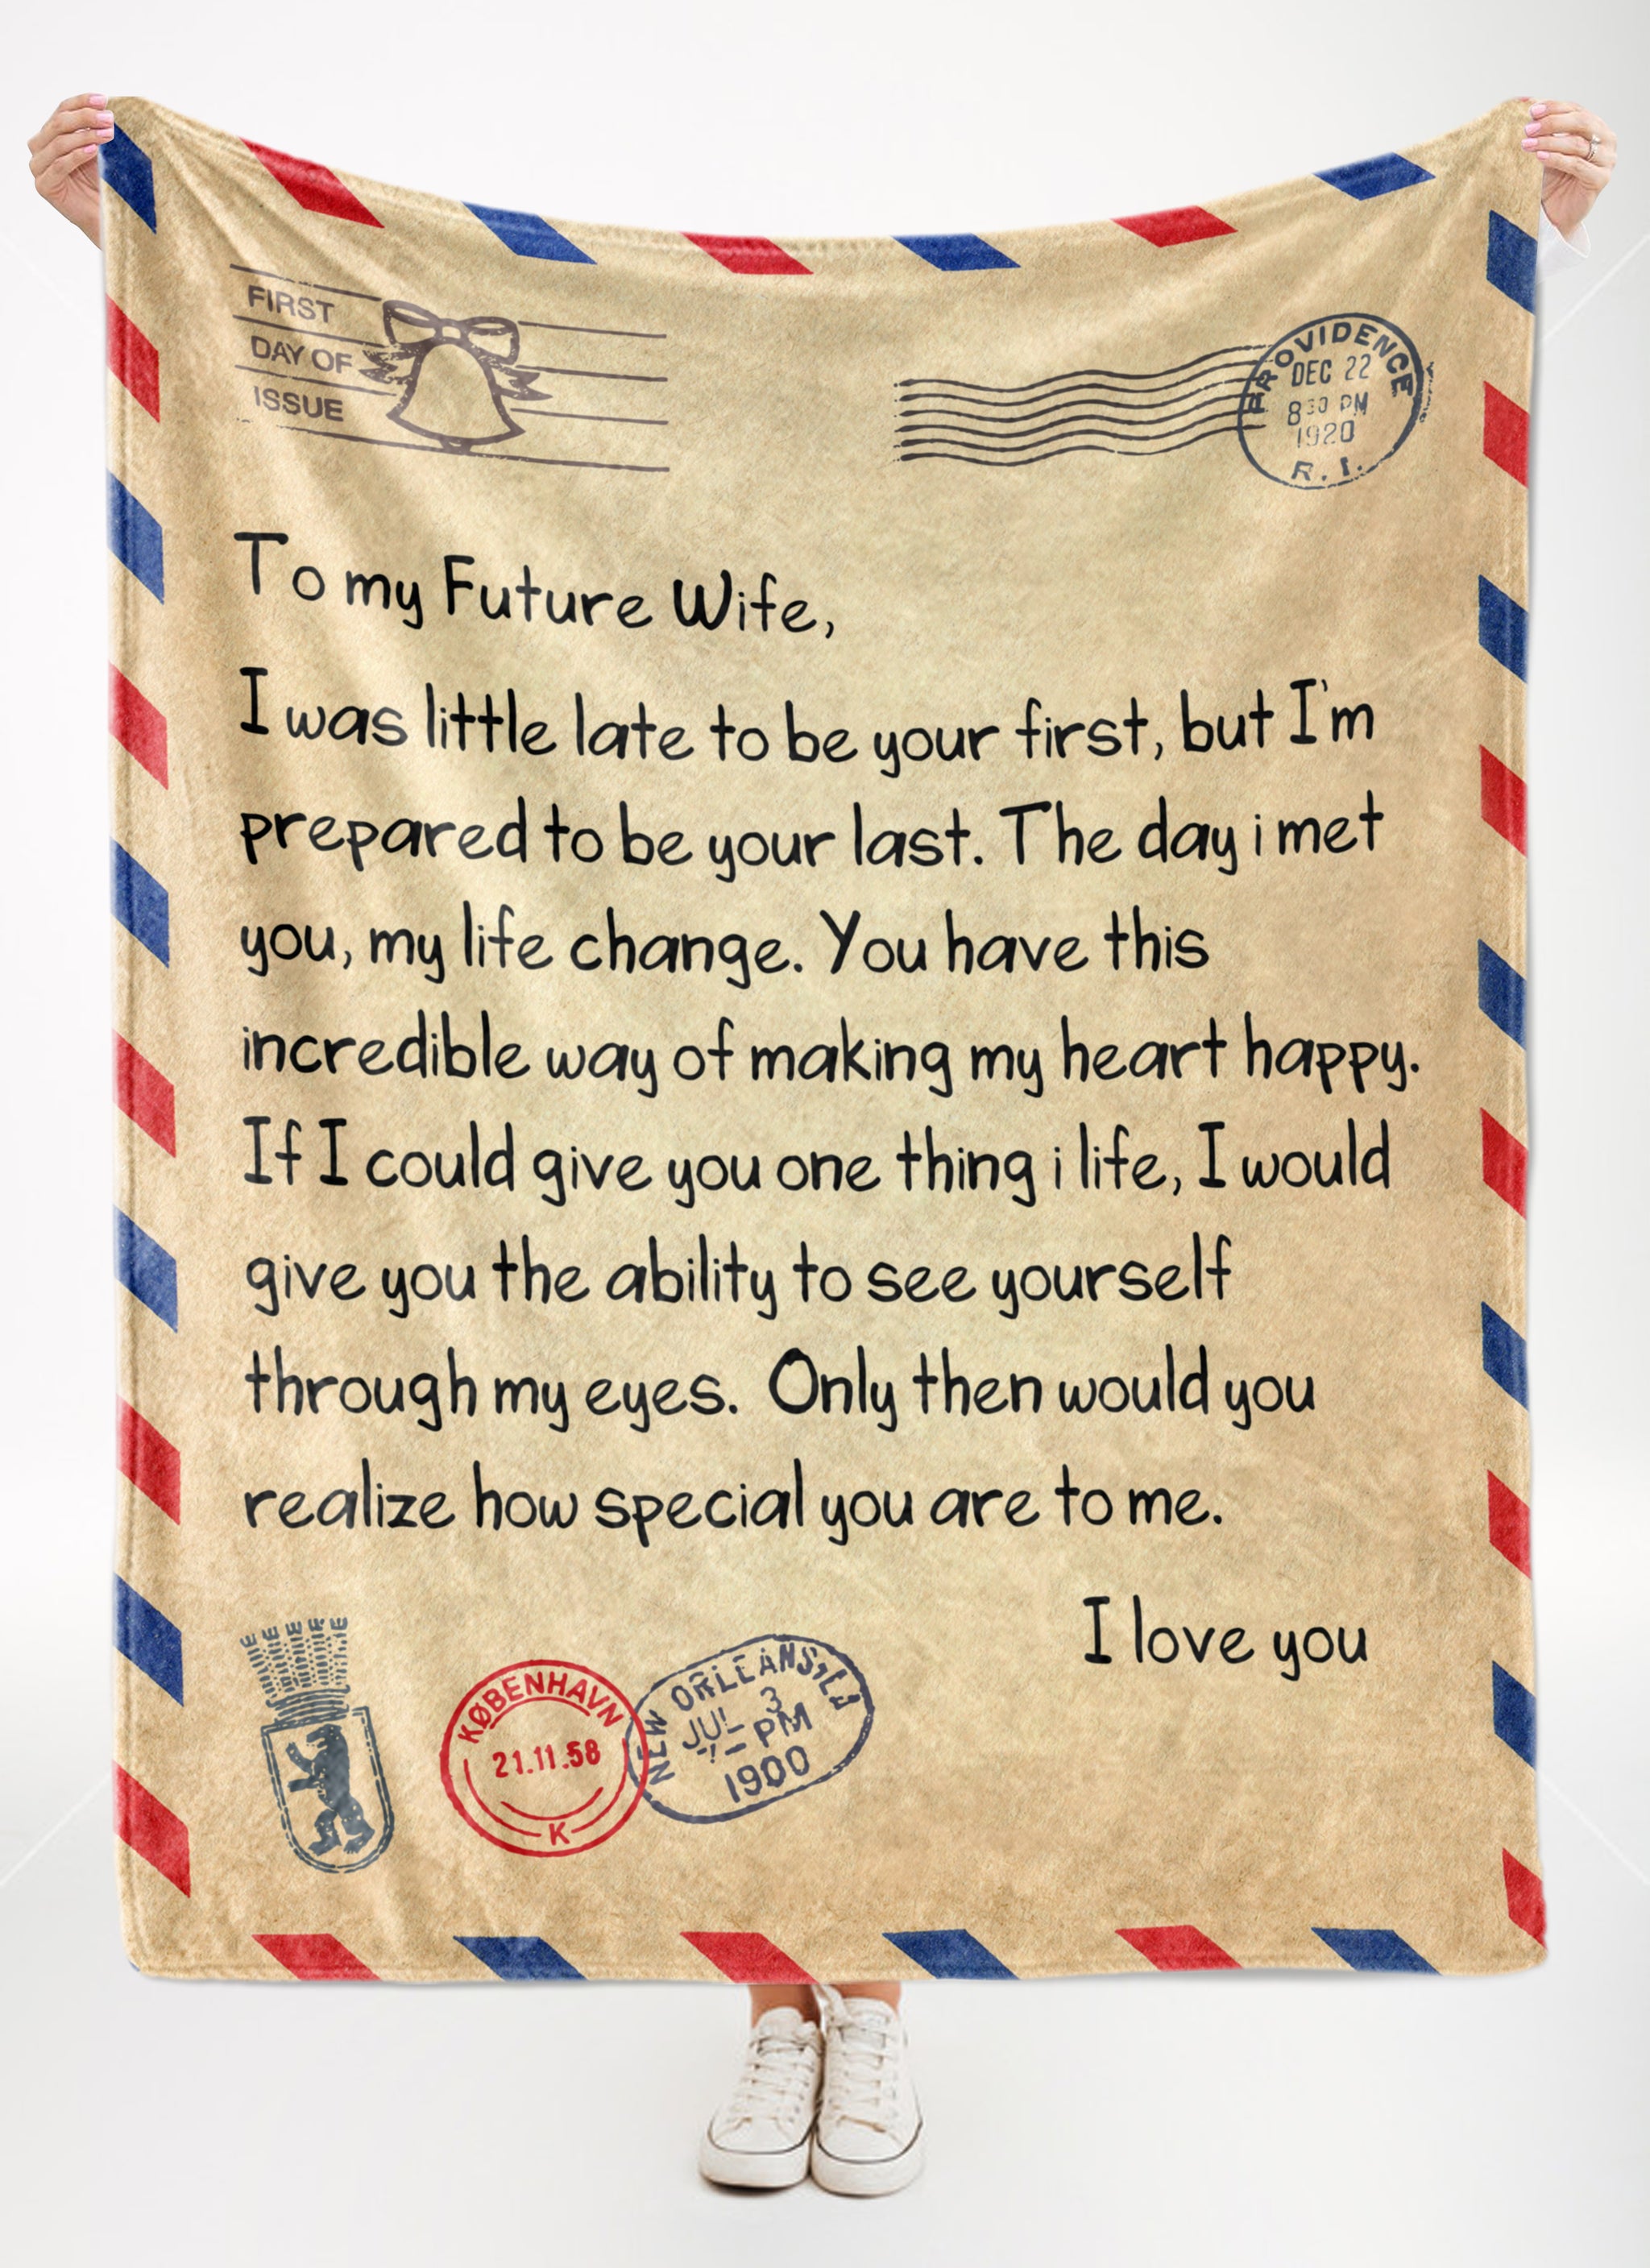 FIRST
DAY OF
ISSUE
PROVIDENCE
DEC 22
8 30 PM
1920
R. I.
To my Future Wife,
I was little late to be your first, but I'm
prepared to be your last. The day i met
you, my life change. You have this
incredible way of making my heart happy.
If I could give you one thing i life, I would
give you the ability to see yourself
through my eyes. Only then would you
realize how special you are to me.
I love you
KØBENHAVN
21.11.58
K
NEW ORLEANS
JUL 3
PM
1900